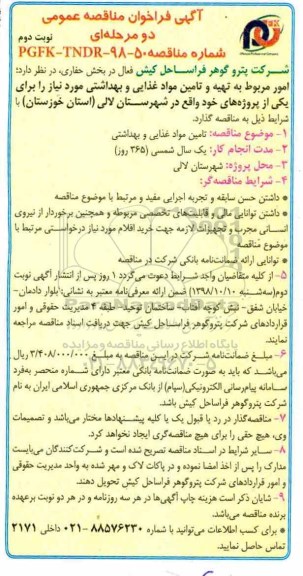 آگهی فراخوان مناقصه عمومی
دو مرحله‌ای
نوبت دوم
شماره مناقصه PGFK-TNDR-98-50
شرکت پترو گوهر فراساحل کیش فعال در بخش حفاری، در نظر دارد؛
امور مربوط به تهیه و تامین مواد غذایی و بهداشتی مورد نیاز را برای
یکی از پروژه‌های خود واقع در شهرستان لالی (استان خوزستان) با
شرایط ذیل به مناقصه گذارد.
۱- موضوع مناقصه: تامین مواد غذایی و بهداشتی
۲- مدت انجام کار: یک سال شمسی (۳۶۵ روز)
۳- محل پروژه: شهرستان لالی
۴- شرایط مناقصه‌گر:
* داشتن حسن سابقه و تجربه اجرایی مفید و مرتبط با موضوع مناقصه
* داشتن توانایی مالی و قابلیت‌های تخصصی مربوطه و همچنین برخوردار از نیروی
انسانی مجرب و تجهیزات لازمه جهت خرید اقلام مورد نیاز درخواستی مرتبط با
موضوع مناقصه
* توانایی ارائه ضمانتنامه بانکی شرکت در مناقصه
۵- از کلیه متقاضیان واجد شرایط دعوت می‌گردد ۱ روز پس از انتشار آگهی نوبت
دوم (سه‌شنبه ۱۳۹۸/۱۰/۱۰) ضمن ارائه معرفی‌نامه معتبر به نشانی: بلوار دادمان-
خیابان شفق- نبش کوچه آفتاب- ساختمان توحید- طبقه ۴ مدیریت حقوقی و امور
قراردادهای شرکت پتروگوهر فراساحل کیش جهت دریافت اسناد مناقصه مراجعه
نمایند.
۶- مبلغ ضمانت‌نامه شرکت در این مناقصه به مبلغ ۳/۴۰۸/۰۰۰/۰۰۰ ریال
می‌باشد که باید به صورت ضمانت‌نامه بانکی معتبر دارای شماره منحصر به‌فرد
سامانه پیام‌رسانی الکترونیکی (سپام) از بانک مرکزی جمهوری اسلامی ایران به نام
شرکت پتروگوهر فراساحل کیش باشد.
۷- مناقصه‌گذار در رد یا قبول یک یا کلیه پیشنهادها مختار می‌باشد و تصمیمات
وی، هیچ حقی را برای هیچ مناقصه‌گری ایجاد نخواهد کرد.
۸- سایر شرایط در اسناد مناقصه تصریح شده است و شرکت‌کنندگان می‌بایست
مدارک را پس از اخذ امضا نموده و در پاکات لاک و مهر شده به واحد مدیریت حقوقی
و امور قراردادهای شرکت پتروگوهر فراساحل کیش تحویل دهند.
۹- شایان ذکر است هزینه چاپ آگهی‌ها در هر سه روزنامه و در هر دو نوبت برعهده
برنده مناقصه می‌باشد.
* برای کسب اطلاعات می‌توانید با شماره ۸۸۵۷۶۲۳۰-۰۲۱ داخلی ۲۱۷۱
تماس حاصل نمایید.